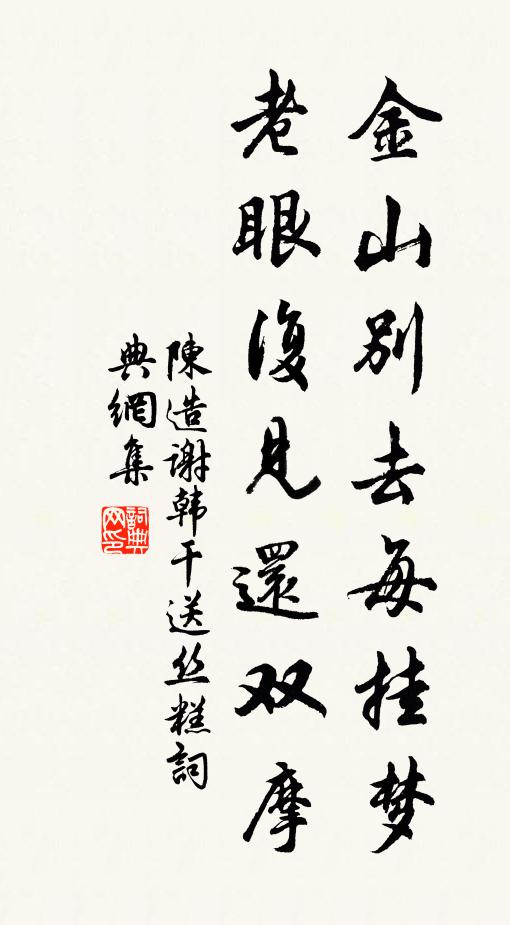 金山别去每挂梦
老眼復见還双摩
陳造谢韩干送丝糕詞
典網集
詞典网印